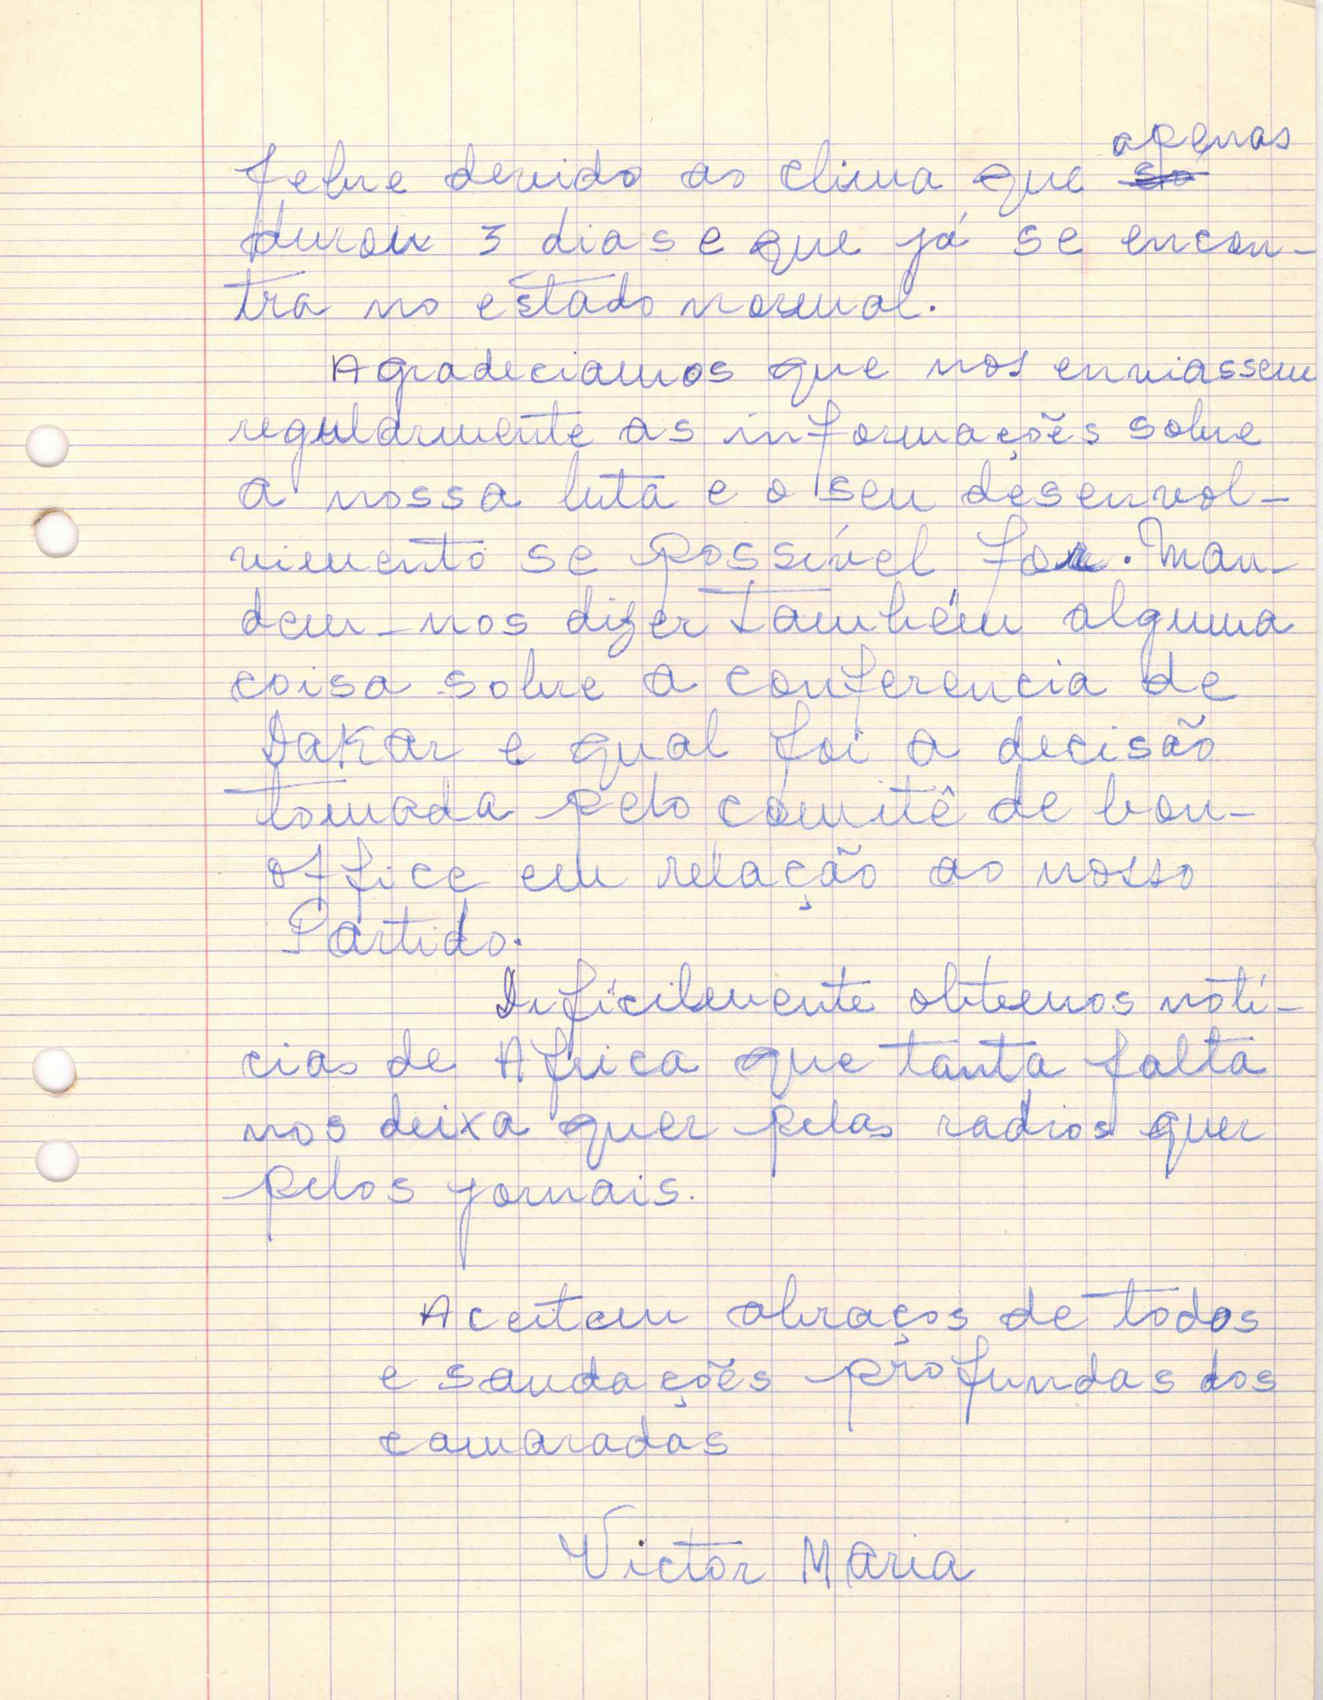 apenas
febre devido ao clima que so
durou 3 dias e que já se encon-
tra no estado normal.
Agradeciamos que nos enviassem
regularmente as informações sobre
a nossa luta e o seu desenvol-
vimento se possível for. Man-
dem-nos dizer também alguma
coisa sobre a conferencia de
Dakar e qual foi a decisão
tomada pelo comitê de bon-
office em relação ao nosso
Partido.
Dificilmente obtemos notí-
cias de Africa que tanta falta
nos deixa quer pelas radios quer
pelos jornais.
Aceitem abraços de todos
e saudações profundas dos
camaradas
Victor Maria